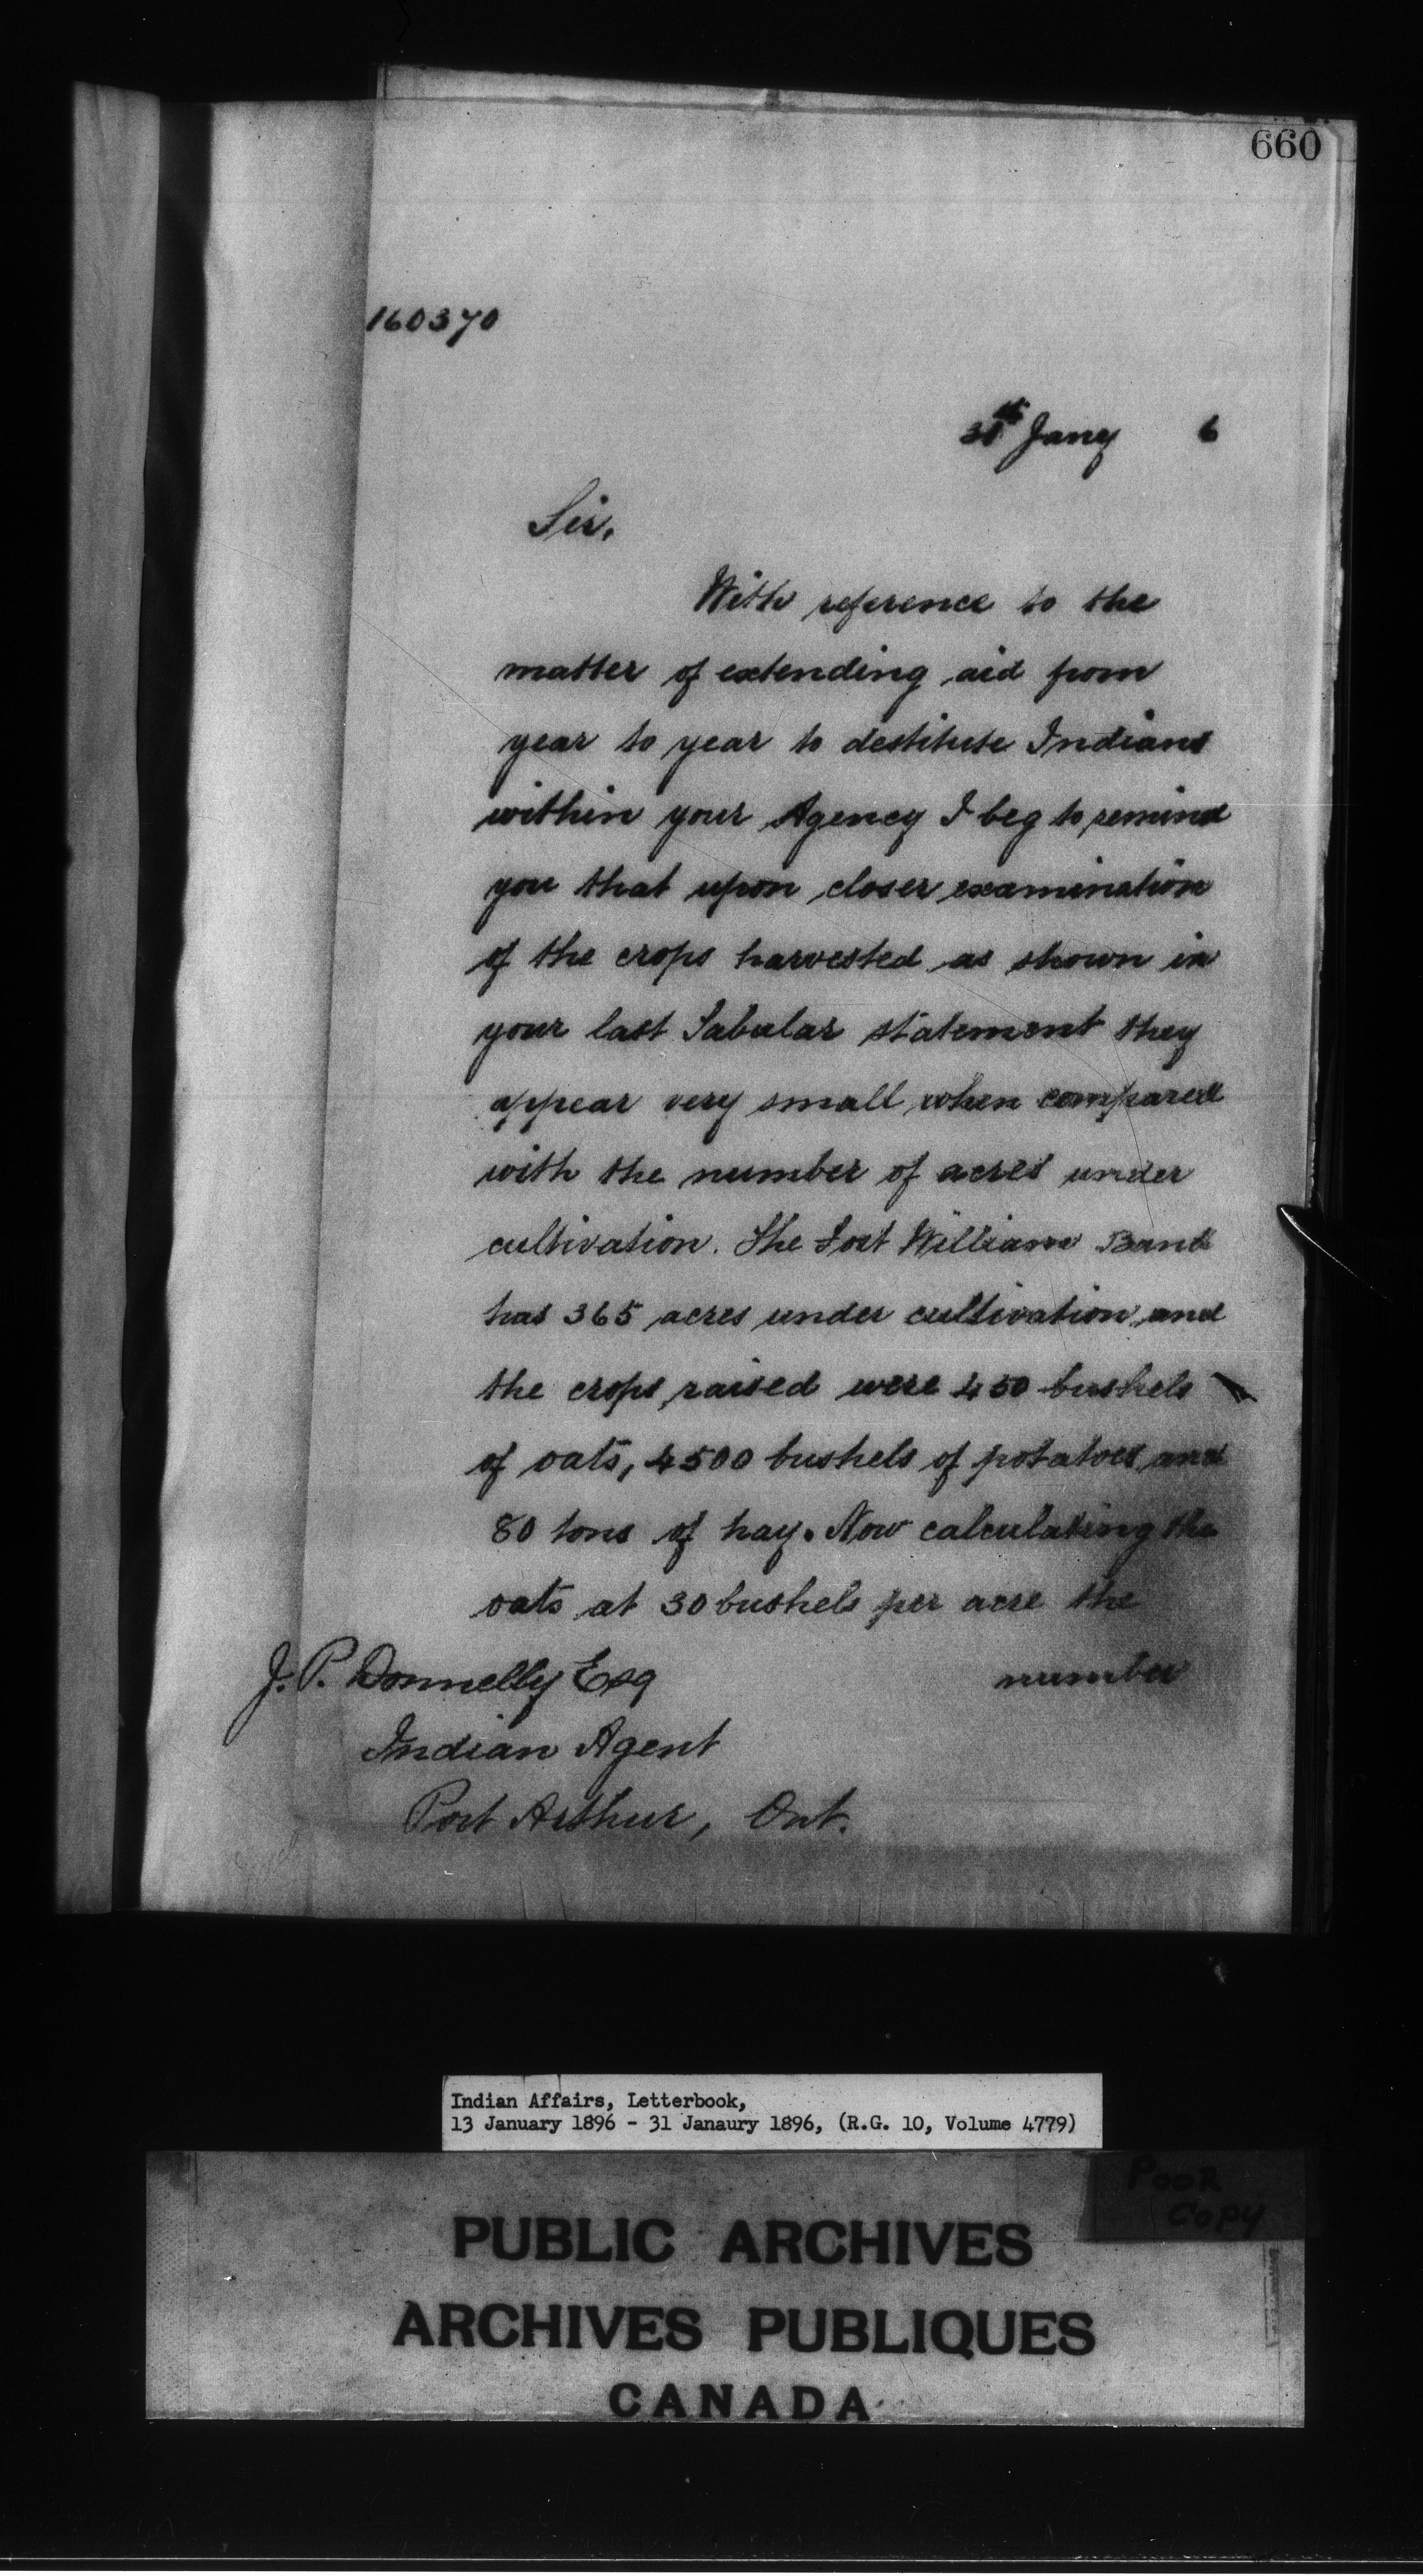 660
160370
31st Jany 6
Sir,
With reference to the
matter of extending aid from
year to year to destitute Indians
within your Agency I beg to remind
you that upon closer examination
of the crops harvested as shown in
your last Tabular statement they
appear very small when compared
with the number of acres under
cultivation. The Fort William Band
has 365 acres under cultivation and
the crops raised were 450 bushels
of oats, 4500 bushels of potatoes and
80 tons of hay. Now calculating the
oats at 30 bushels per acre the
number
J. P. Donnelly Esq
Indian Agent
Port Arthur, Ont.
Indian Affairs, Letterbook,
13 January 1896 - 31 Janaury 1896, (R.G. 10, Volume 4779)
POOR
COPY
PUBLIC ARCHIVES
ARCHIVES PUBLIQUES
CANADA